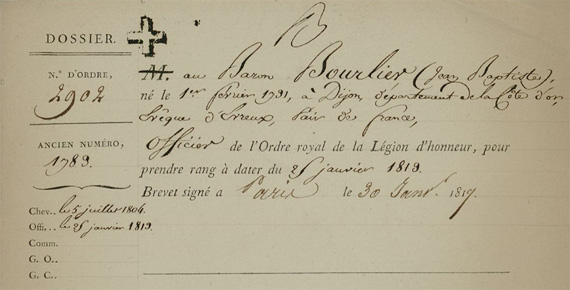 B
DOSSIER.
N.° D'ORDRE,
2902
ANCIEN NUMÉRO,
1783.
Chev.. le 5 juillet 1804.
Off... le 25 janvier 1813.
Comm.
G. O..
G. C..
M. au Baron Bourlier (Jean Baptiste),
né le 1er février 1731, à Dijon, département de la Côte d'or,
Evêque d'Evreux, Pair de france,
Officier de l'Ordre royal de la Légion d'honneur, pour
prendre rang à dater du 25 janvier 1813.
Brevet signé à Paris le 30 Janv. 1817.